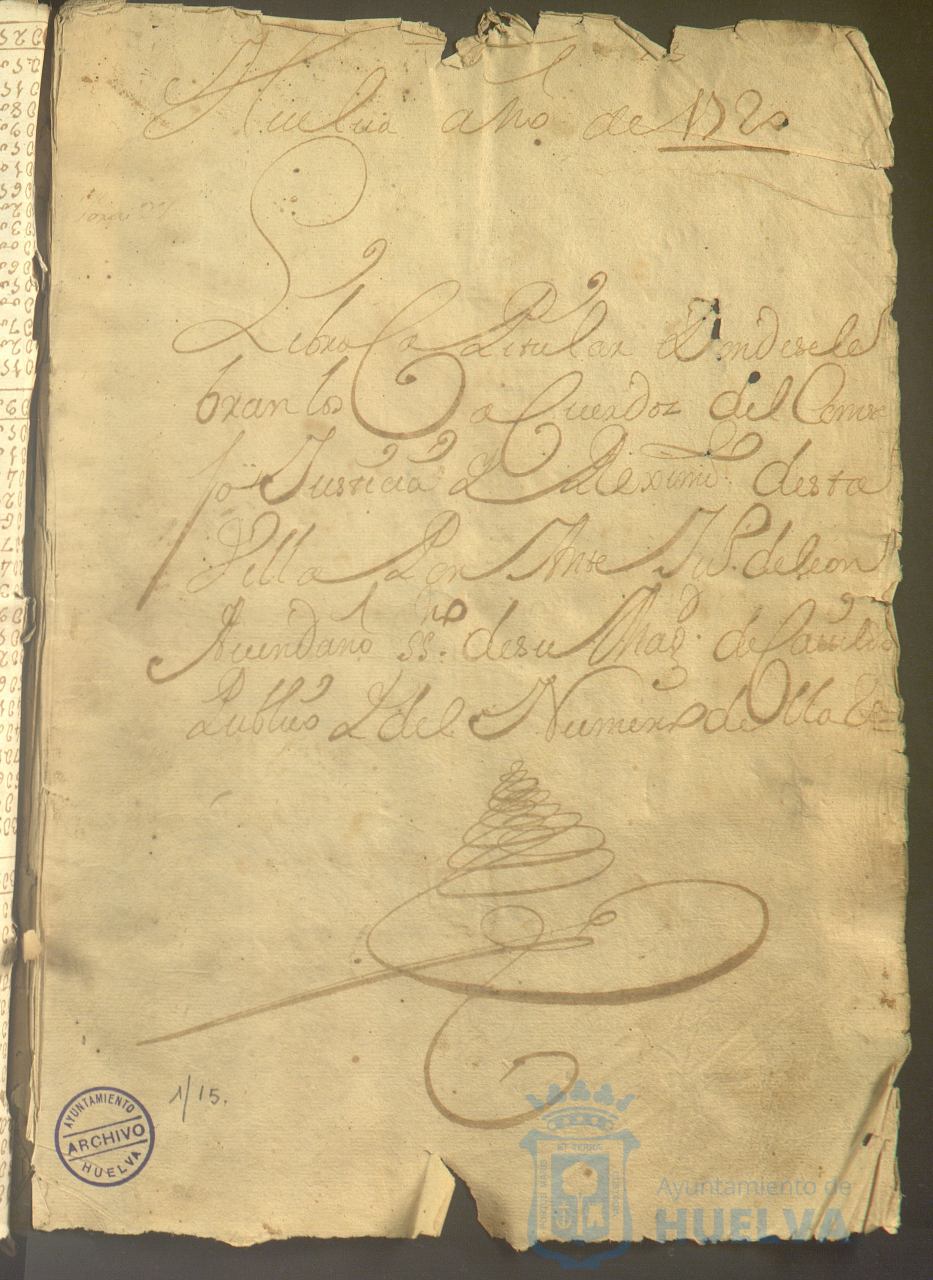 Huelua año de 1720
Libro Capitular Donde sele
bran los aCuerdoz del Conse
jo Justicia Y Reximi.to desta
Villa Por Ante Ju.o de leon
Auendaño ss.no desu Mag.d de Cauildo
Publico Y del Numero de Ella
AYUNTAMIENTO
ARCHIVO
HUELVA
1/15.
Ayuntamiento de
HUELVA